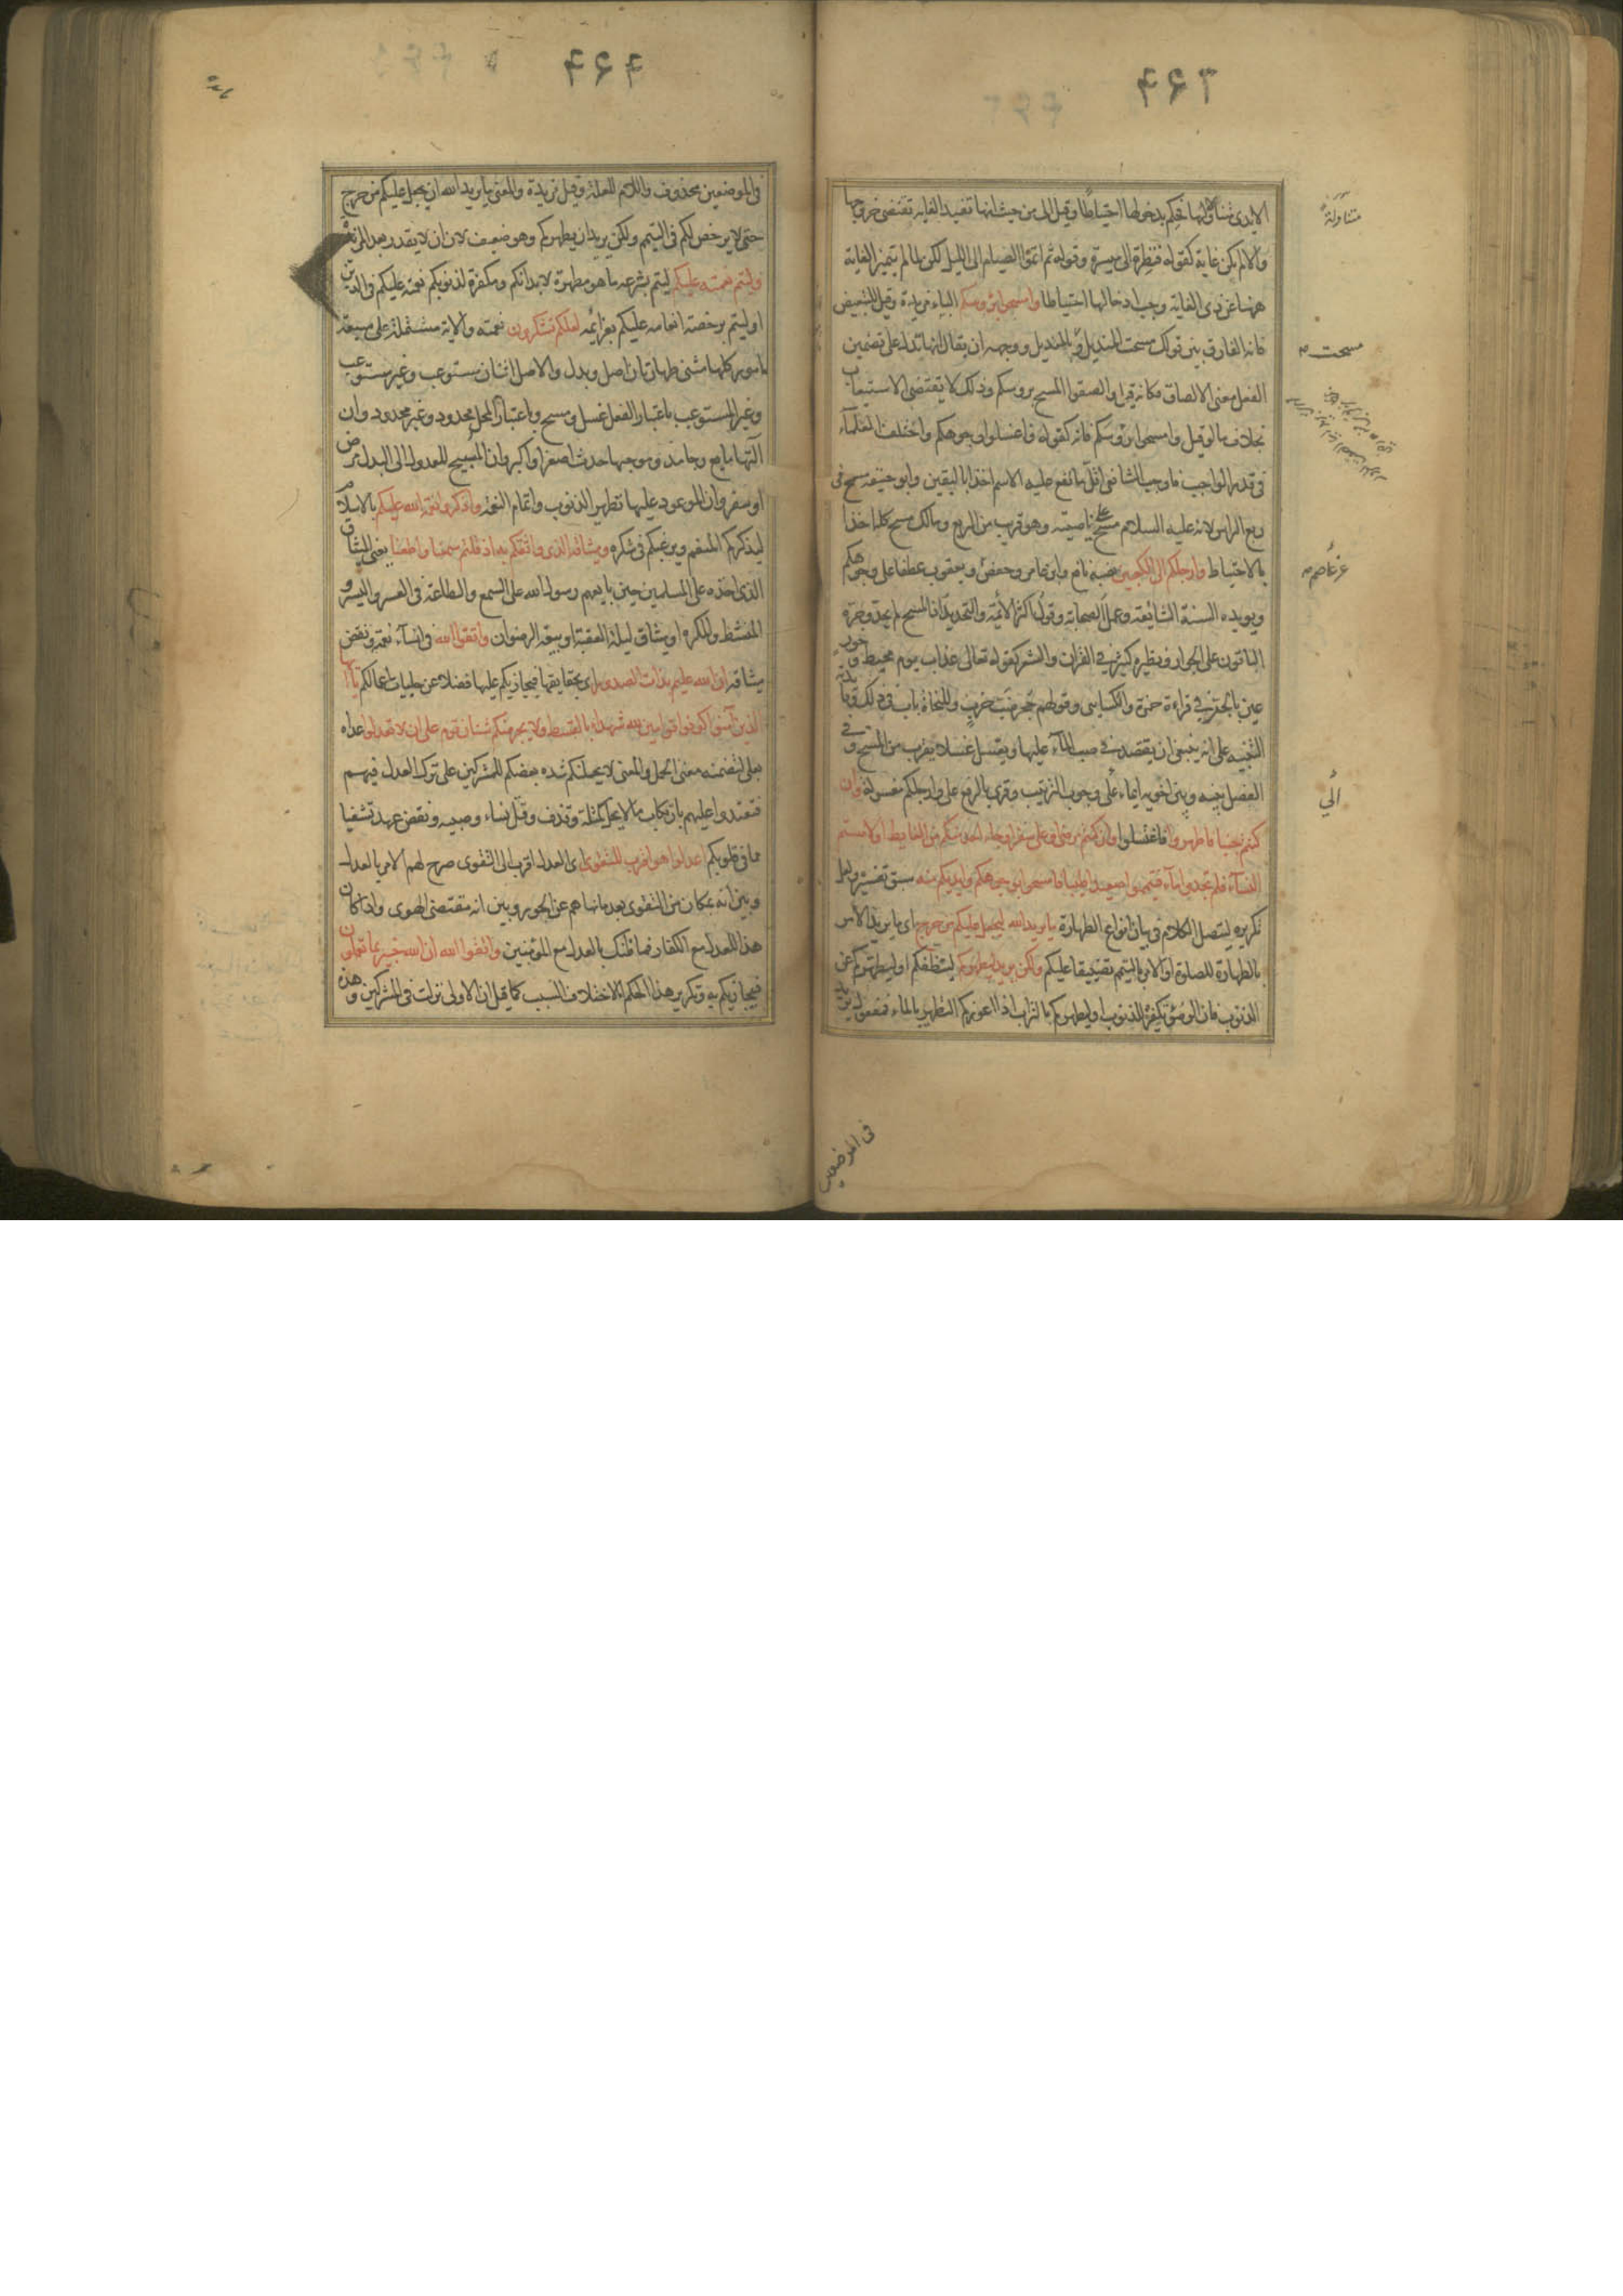 ۴۶۳
الايدى متناولة لها فحكم بدخولها احتياطا وقيل الى من حيث انها تفيد الغاية تقتضى خروجها
والا لم تكن غاية كقوله فنظرة الى ميسرة وقوله ثم اتموا الصيام الى الليل لكن لما لم يتميز الغاية
ههنا عن ذى الغاية وجب ادخالها احتياطا وامسحوا برؤسكم الباء مزيدة وقيل للتبعيض
فانه الفارق بين قولك مسحت المنديل وبالمنديل ووجهه ان يقال انها تدل على تضمين
الفعل معنى الالصاق فكانه قيل والصقوا المسح برؤسكم وذلك لا يقتضى الاستيعاب
بخلاف ما لو قيل وامسحوا رؤسكم فانه كقوله فاغسلوا وجوهكم واختلف العلماء
فى قدر الواجب فاوجب الشافعى اقل ما يقع عليه الاسم اخذا باليقين وابو حنيفة مسح
ربع الراس لانه عليه السلام مسح على ناصيته وهو قريب من الربع ومالك مسح كله اخذا
بالاحتياط وارجلكم الى الكعبين نصبه نافع وابن عامر وحفص ويعقوب عطفا على وجوهكم
ويويده السنة الشائعة وعمل الصحابة وقول اكثر الائمة والتحديد اذ المسح لم يحد وجره
الباقون على الجوار ونظيره كثير فى القران والشعر كقوله تعالى عذاب يوم محيط وحور
عين بالجر فى قراءة حمزة والكسائى وقولهم جحر ضب خرب وللنحاة باب فى ذلك وفائدته
التنبيه على انه ينبغى ان يقتصد فى صب الماء عليها ويغسل غسلا يقرب من المسح وفى
الفصل بينه وبين اخويه ايماء على وجوب الترتيب وقرئ بالرفع على وارجلكم مغسولة وان
كنتم جنبا فاطهروا فاغتسلوا وان كنتم مرضى او على سفر او جاء احد منكم من الغايط او لامستم
النساء فلم تجدوا ماء فتيمموا صعيدا طيبا فامسحوا بوجوهكم وايديكم منه سبق تفسيره ولعل
تكريره ليتصل الكلام فى بيان انواع الطهارة ما يريد الله ليجعل عليكم من حرج اى ما يريد الامر
بالطهارة للصلوة او الامر بالتيمم تضييقا عليكم ولكن يريد ليطهركم لينظفكم او ليطهركم عن
الذنوب فان الوضوء تكفير للذنوب او ليطهركم بالتراب اذا اعوزكم التطهير بالماء فمفعول يريد
متناولة
مسحت
عن عاصم
الى
فى الموضعين
۴۶۴
فى الموضعين محذوف واللام للعلة وقيل مزيدة والمعنى ما يريد الله ان يجعل عليكم من حرج
حتى لا يرخص لكم فى التيمم ولكن يريد ان يطهركم وهو ضعيف لان ان لا يقدر بعد المزيدة
وليتم نعمته عليكم ليتم بشرعه ما هو مطهرة لابدانكم ومكفرة لذنوبكم نعمته عليكم فى الدين
او ليتم برخصه انعامه عليكم بعزائمه لعلكم تشكرون نعمته والاية مشتملة على سبعة
امور كلها مثنى طهارتان اصل وبدل والاصل اثنان مستوعب وغير مستوعب
وغير المستوعب باعتبار الفعل غسل ومسح وباعتبار المحل محدود وغير محدود وان
آلتهما مايع وجامد وموجبها حدث اصغر واكبر وان المبيح للعدول الى البدل مرض
او سفر وان الموعود عليها تطهير الذنوب واتمام النعمة واذكروا نعمة الله عليكم بالاسلام
ليذكركم المنعم ويرغبكم فى شكره وميثاقه الذى واثقكم به اذ قلتم سمعنا واطعنا يعنى الميثاق
الذى اخذه على المسلمين حين بايعهم رسول الله على السمع والطاعة فى العسر واليسر و
المنشط والمكره او ميثاق ليلة العقبة او بيعة الرضوان واتقوا الله فى انساء نعمته ونقض
ميثاقه ان الله عليم بذات الصدور اى بخفاياتها فيجازيكم عليها فضلا عن جليات اعمالكم يا ايها
الذين آمنوا كونوا قوامين لله شهداء بالقسط ولا يجرمنكم شنان قوم على ان لا تعدلوا عداه
بعلى لتضمنه معنى الحمل والمعنى لا يحملنكم شدة بغضكم للمشركين على ترك العدل فيهم
فتعتدوا عليهم بارتكاب ما لا يحل كمثلة وقذف وقتل نساء وصبية ونقض عهد تشفيا
مما فى قلوبكم اعدلوا هو اقرب للتقوى اى العدل اقرب الى التقوى صرح لهم الامر بالعدل
وبين انه بمكان من التقوى بعد ما نهاهم عن الجور وبين انه مقتضى الهوى واذا كان
هذا للعدل مع الكفار فما ظنك بالعدل مع المؤمنين واتقوا الله ان الله خبير بما تعملون
فيجازيكم به وتكرير هذا الحكم لاختلاف السبب كما قيل ان الاولى نزلت فى المشركين وهذه